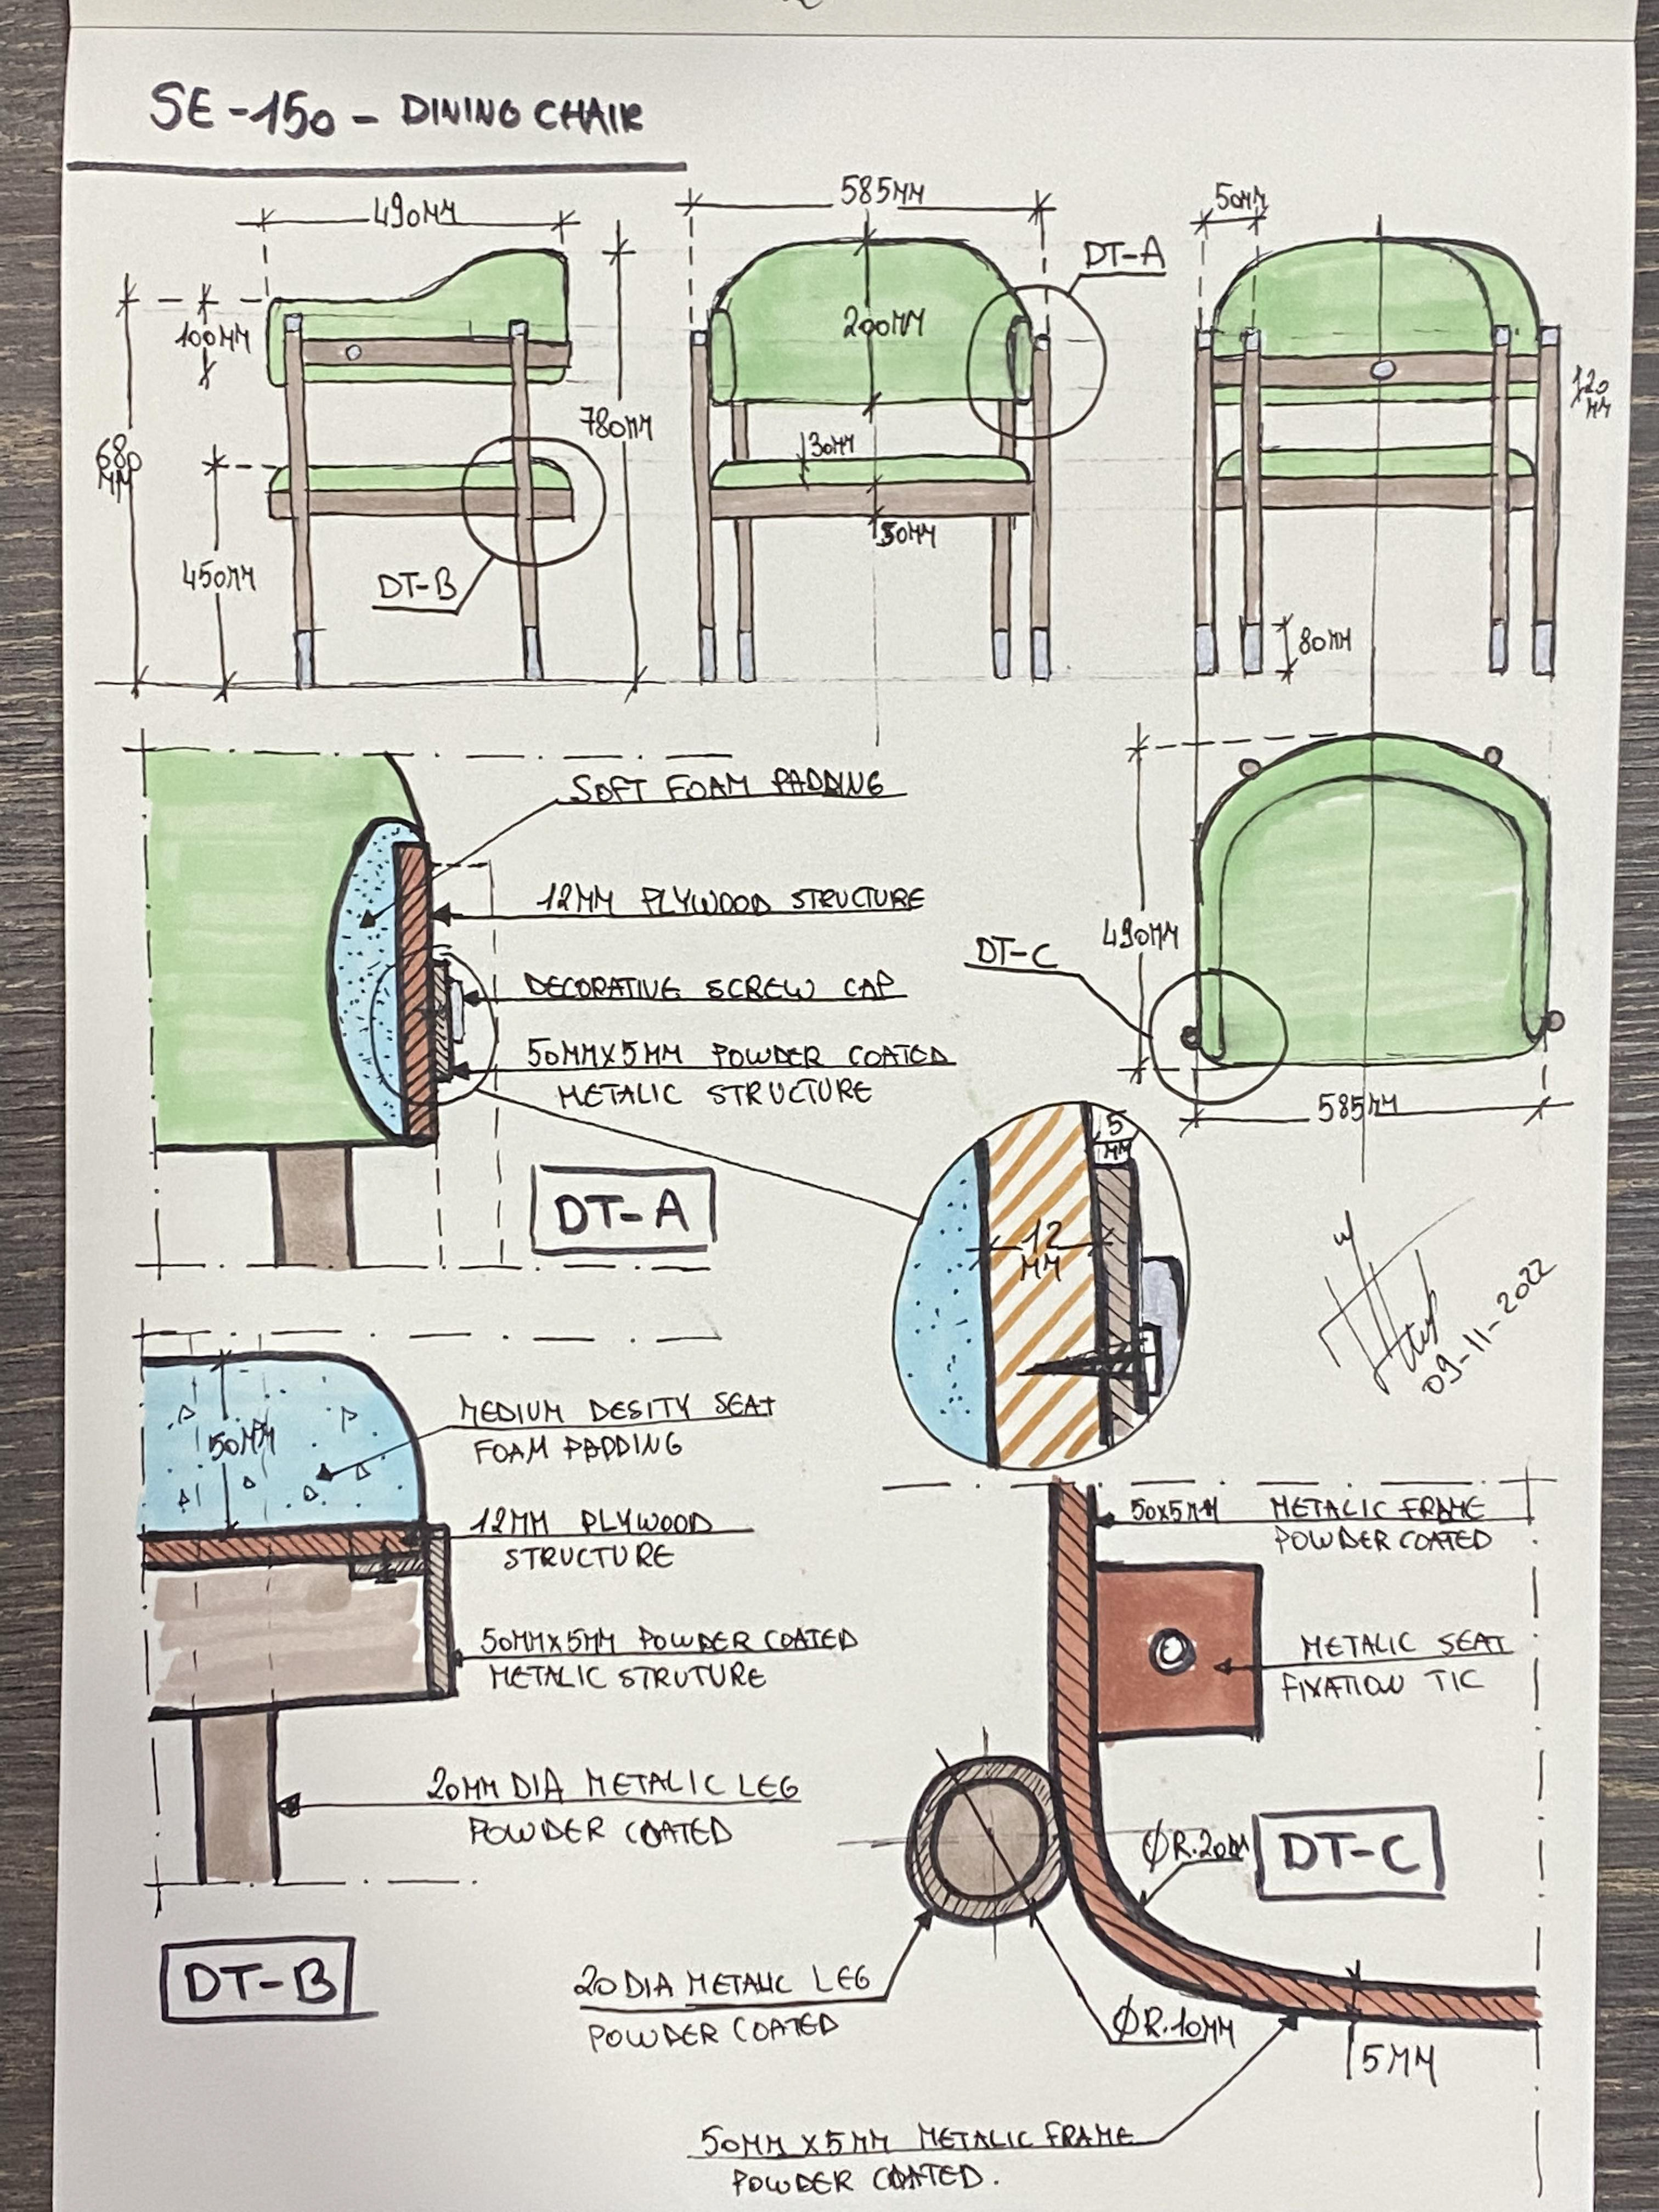 SE-150 - DINING CHAIR
490MM
585MM
50MM
DT-A
100MM
200MM
120
MM
780MM
680
MM
30MM
450MM
50MM
DT-B
80MM
SOFT FOAM PADDING
12MM PLYWOOD STRUCTURE
490MM
DT-C
DECORATIVE SCREW CAP
50MMX5MM POWDER COATED
METALIC STRUCTURE
585MM
5
MM
DT-A
12
MM
09-11-2022
MEDIUM DESITY SEAT
FOAM PADDING
50MM
12MM PLYWOOD
STRUCTURE
50X5MM METALIC FRAME
POWDER COATED
50MMX5MM POWDER COATED
METALIC STRUTURE
METALIC SEAT
FIXATION TIC
20MM DIA METALIC LEG
POWDER COATED
ØR.20MM
DT-C
DT-B
20 DIA METALIC LEG
POWDER COATED
ØR.10MM
5MM
50MM X5MM METALIC FRAME
POWDER COATED.